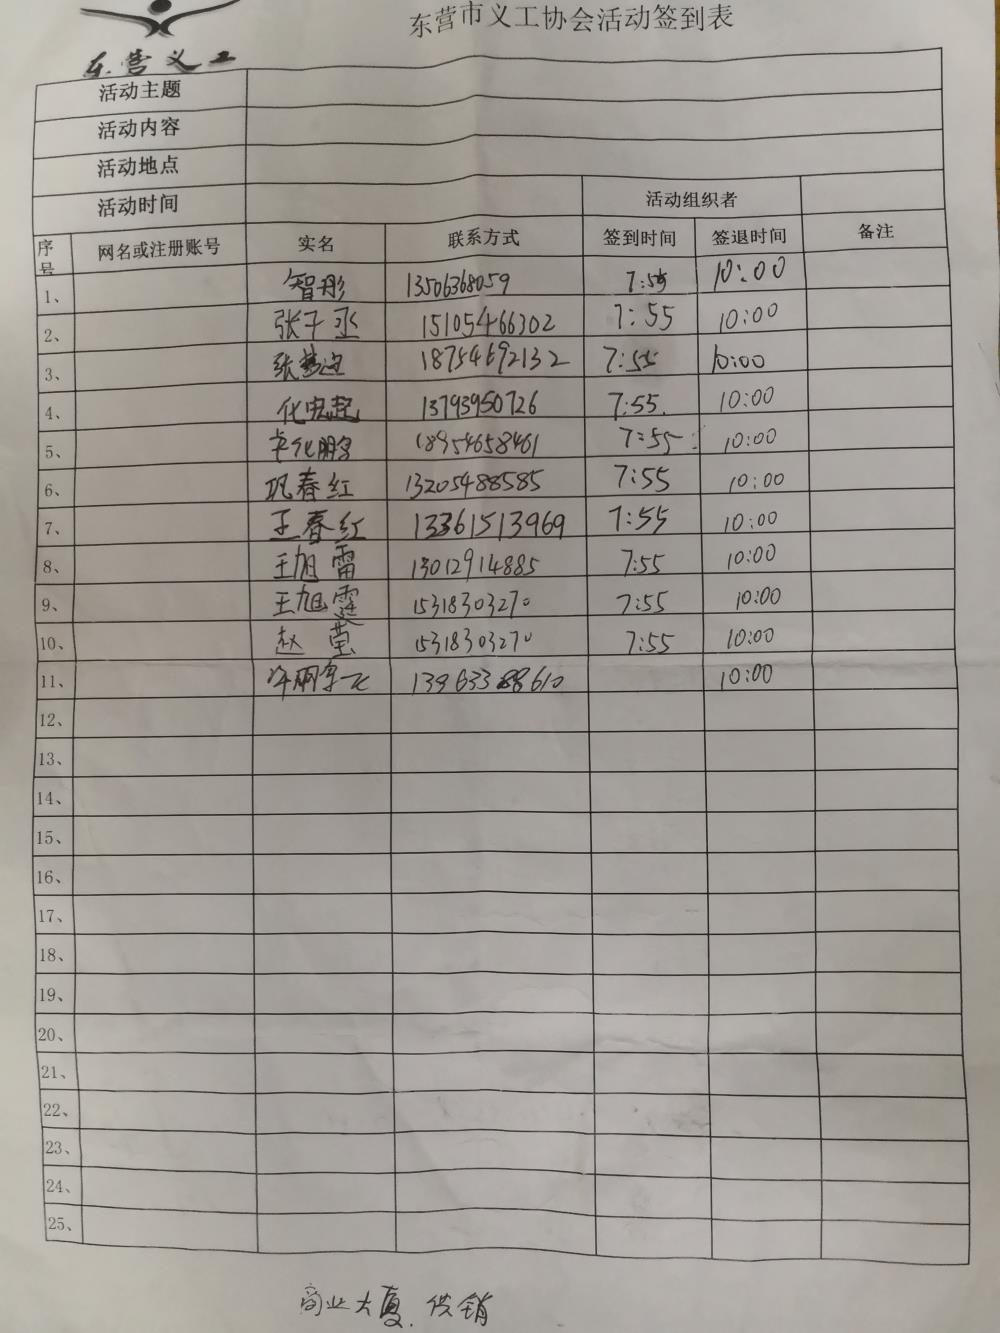 东营市义工协会活动签到表
东营义工
活动主题
活动内容
活动地点
活动时间 活动组织者
序号 网名或注册账号 实名 联系方式 签到时间 签退时间 备注
1、 智彤 13506368059 7:55 10:00
2、 张子丞 15105466302 7:55 10:00
3、 张 18754692132 7:55 10:00
4、 13793950726 7:55 10:00
5、 18954658461 7:55 10:00
6、 巩春红 13205488585 7:55 10:00
7、 王春红 13361513969 7:55 10:00
8、 王旭雷 13012914885 7:55 10:00
9、 王旭霆 15318303270 7:55 10:00
10、 赵莹 15318303270 7:55 10:00
11、 10:00
12、
13、
14、
15、
16、
17、
18、
19、
20、
21、
22、
23、
24、
25、
商业大厦.供销